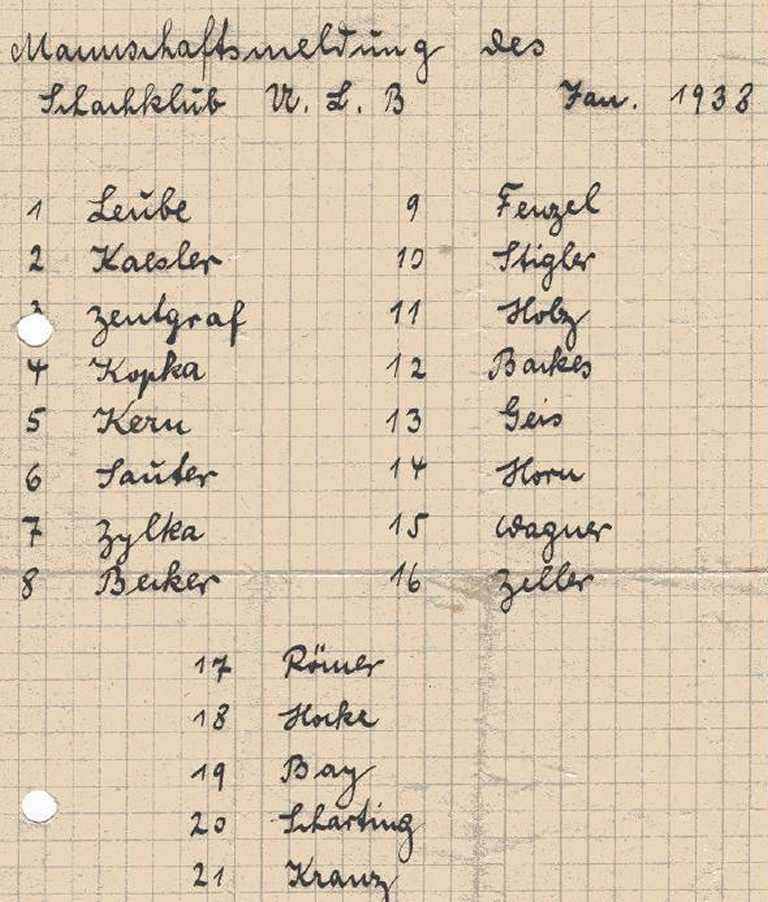 Mannschaftsmeldung des
Schachklub V. L. B Jan. 1938
1 Leube 9 Fenzel
2 Kaesler 10 Stigler
3 Zentgraf 11 Holz
4 Kopka 12 Backes
5 Kern 13 Geis
6 Sauter 14 Horn
7 Zylka 15 Wagner
8 Becker 16 Zeller
17 Römer
18 Hocke
19 Bay
20 Scharting
21 Kranz